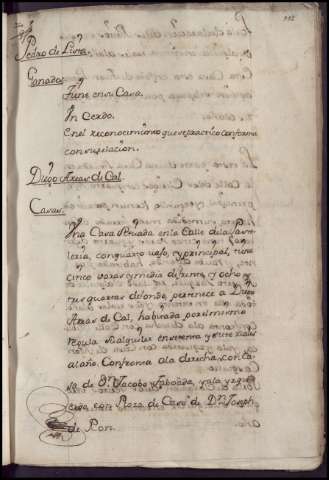 Pedro de Lista.
Ganados
Tiene en su Casa.
Un Cerdo.
En el reconocimiento que se practicó conforma
con su relacion.
Diego Arias de Cal.
Casas.
Una Casa situada en la Calle de la
con quarto vajo, y principal, tiene
cinco varas y media de frente, y ocho y
tres quartas de fondo, pertenece a Diego
Arias de Cal, havitada por si mismo
regula su alquiler en sesenta y siete reales
al año. Confronta a la derecha con Ca
sa de Dn. Jacobo Taboada, y a la yzqui
erda con Plaza de Casa de Dn. Joseph
de Pon.